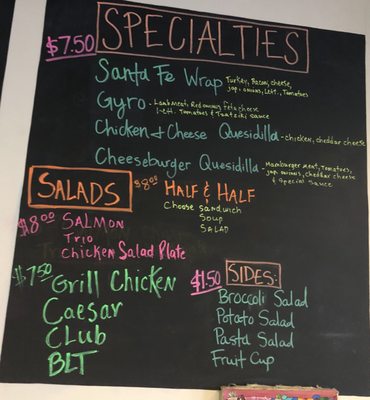 $7.50 SPECIALTIES
Santa Fe Wrap Turkey, Bacon, cheese,
jap. onions, Lett., Tomatoes
Gyro - Lamb meat, Red onions, Feta cheese
Lett. Tomatoes & Tzatziki sauce
Chicken & Cheese Quesidilla - chicken, cheddar cheese
Cheeseburger Quesidilla - Hamburger meat, Tomatoes,
jap. onions, cheddar cheese
& Special Sauce
SALADS
$8.00 HALF & HALF
Choose sandwich
Soup
SALAD
$8.00 SALMON
Trio
Chicken Salad Plate
$7.50 Grill Chicken
Caesar
CLub
BLT
$1.50 SIDES:
Broccoli Salad
Potato Salad
Pasta Salad
Fruit Cup